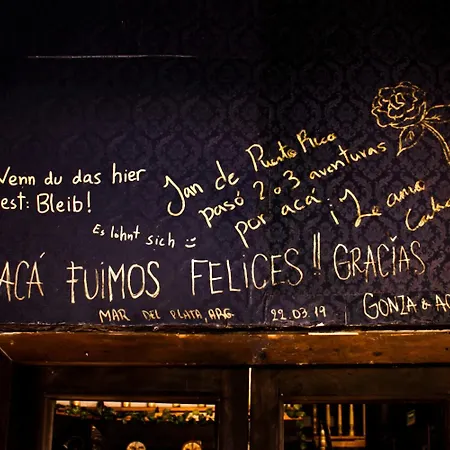 Wenn du das hier
est: Bleib!
Es lohnt sich
Jan de Puerto Rico
pasó 2 o 3 aventuras
por acá ¡Le amo
ACÁ FUIMOS FELICES!! GRACIAS
MAR DEL PLATA, ARG. 22.03.19
GONZA &